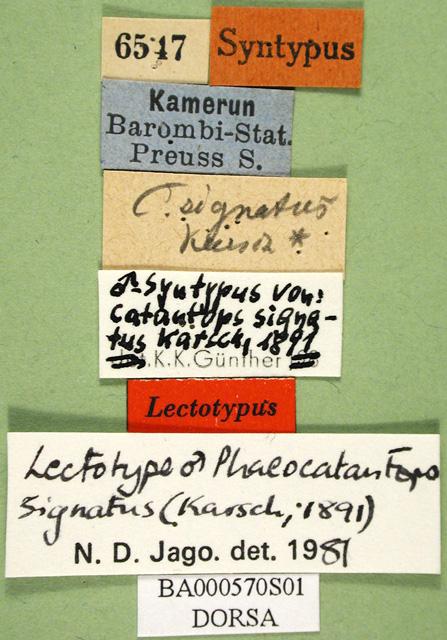 6517
Syntypus
Kamerun
Barombi-Stat.
Preuss S.
C. signatus
Karsch *
♂-Syntypus von:
Catantops signa-
tus Karsch, 1891
det. K.K. Günther
Lectotypus
Lectotype ♂ Phaeocatantops
signatus (Karsch, 1891)
N. D. Jago. det. 1981
BA000570S01
DORSA